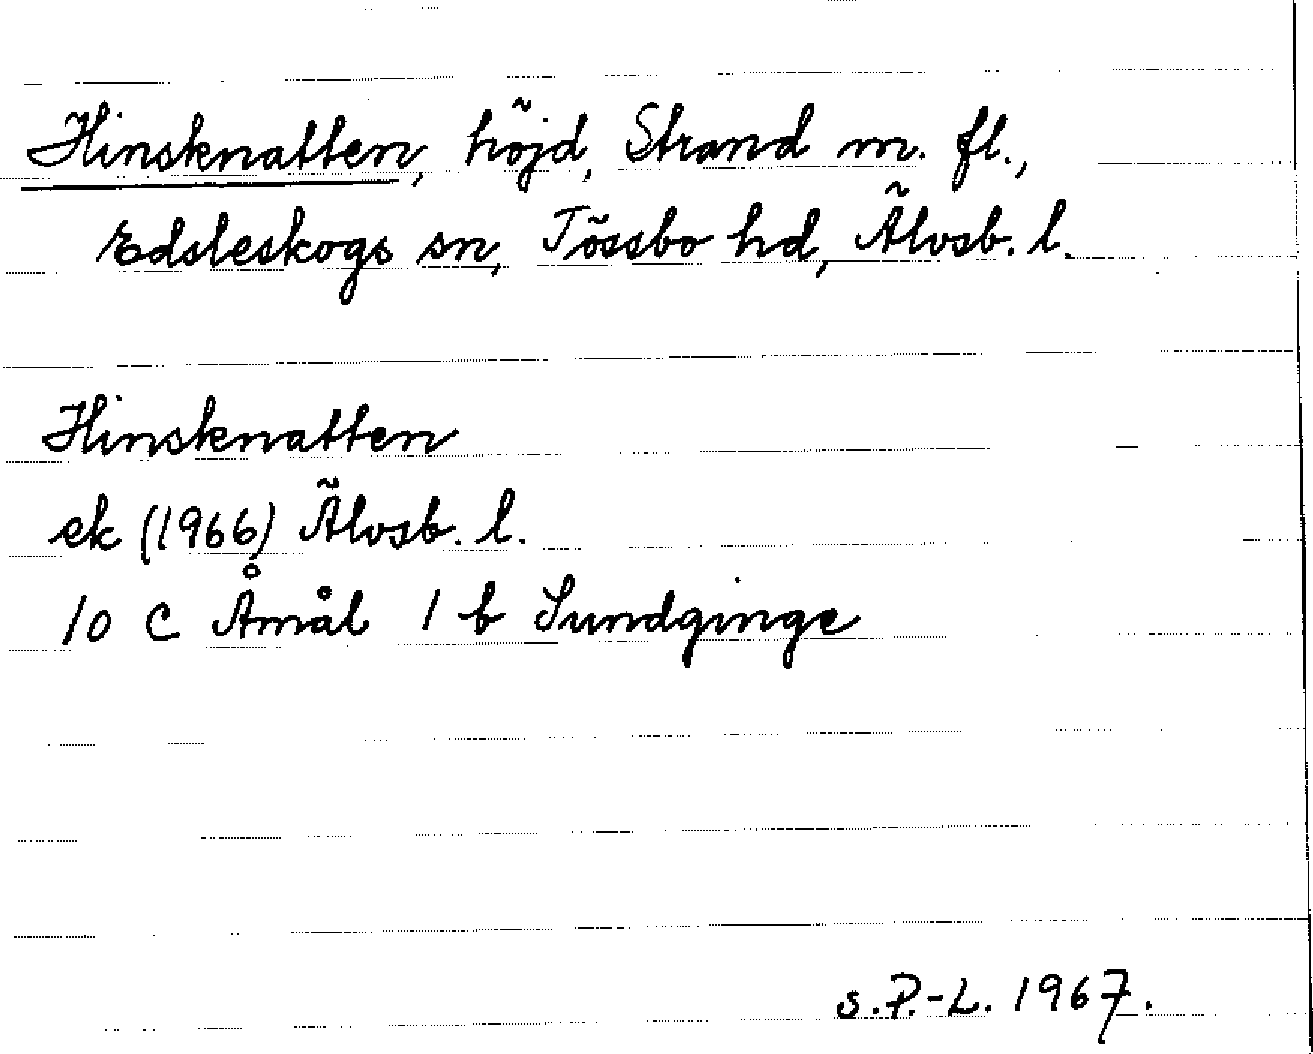 Hinsknatten, höjd, Strand m. fl.,
Edsleskogs sn, Tössbo hd, Älvsb. l.
Hinsknatten
ek (1966) Älvsb. l.
10 C Åmål 1 b Sundginge
S.P.-L. 1967.